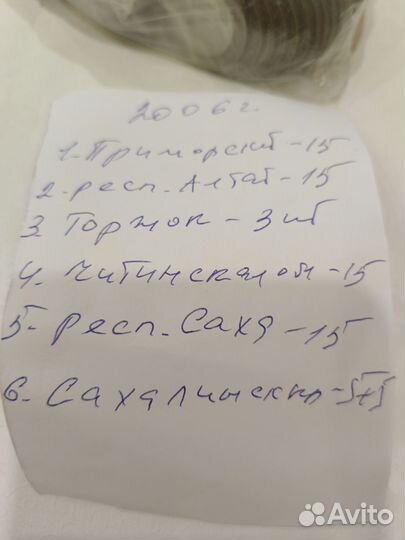 2006 г.
1. Приморский - 15
2. респ. Алтай - 15
3. Торжок - 3 шт
4. Читинская об - 15
5. Респ. Саха - 15
6. Сахалинская - 5+5
Avito